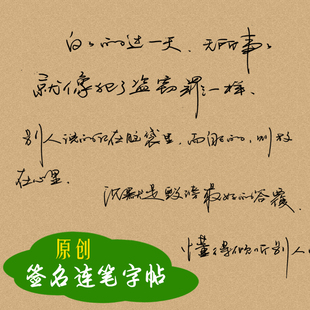 白白的过一天、无所事事
就像犯了盗窃罪一样、
别人说的记在脑袋里，而自己的，则放
在心里.
沉默是毁谤最好的答覆.
懂得倾听别人
原创
签名连笔字帖